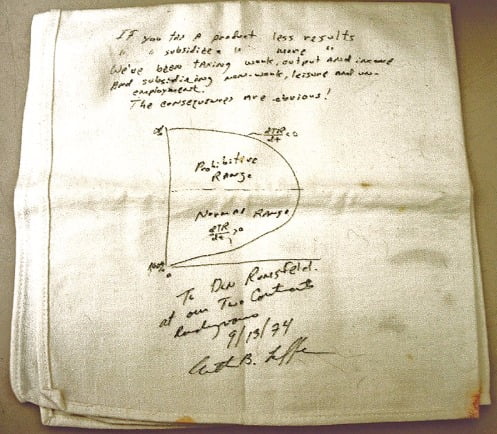 IF you tax A product less results
" " subsidize " " more "
We've been taxing work, output and income
And subsidizing non-work, leisure and un-
employment.
The consequences are obvious!
dTR/dt <0
Prohibitive
Range
Normal Range
dTR/dt >0
100%
0
To Don Rumsfeld.
at our Two Continents
Rendezvous
9/13/74
Arthur B. Laffer